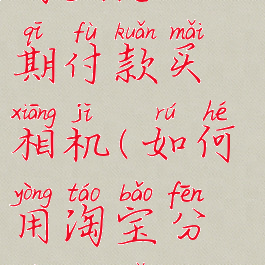 qī fù kuǎn mǎi
期付款买
xiāng jī rú hé
相机(如何
yòng táo bǎo fēn
用淘宝分